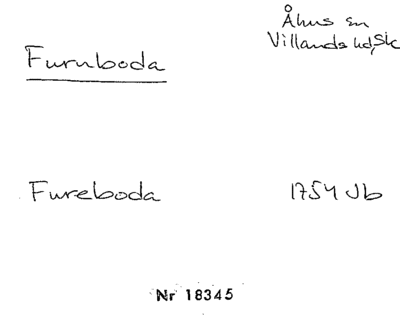 Åhus sn
Villands hd, Sk
Furuboda
Fureboda
1754 Jb
Nr 18345